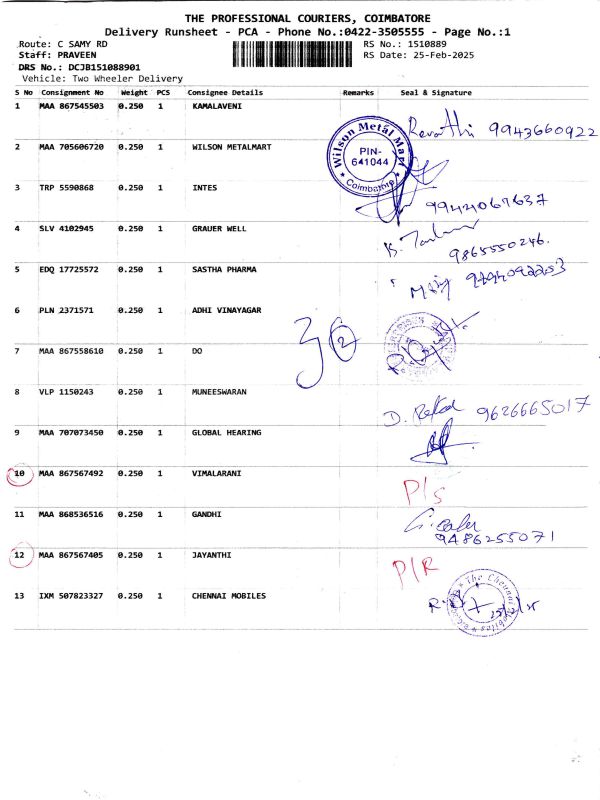 THE PROFESSIONAL COURIERS, COIMBATORE
Delivery Runsheet - PCA - Phone No.:0422-3505555 - Page No.:1
Route: C SAMY RD RS No.: 1510889
Staff: PRAVEEN RS Date: 25-Feb-2025
DRS No.: DCJB151088901
Vehicle: Two Wheeler Delivery
S No Consignment No Weight PCS Consignee Details Remarks Seal & Signature
1 MAA 867545503 0.250 1 KAMALAVENI Revathi 9943660922
2 MAA 705606720 0.250 1 WILSON METALMART Wilson Metal Mart PIN-641044 Coimbatore
3 TRP 5590868 0.250 1 INTES 9944067637
4 SLV 4102945 0.250 1 GRAUER WELL 9865550246.
5 EDQ 17725572 0.250 1 SASTHA PHARMA
6 PLN 2371571 0.250 1 ADHI VINAYAGAR
7 MAA 867558610 0.250 1 DO 2
8 VLP 1150243 0.250 1 MUNEESWARAN D. 9626665017
9 MAA 707073450 0.250 1 GLOBAL HEARING
10 MAA 867567492 0.250 1 VIMALARANI P/s
11 MAA 868536516 0.250 1 GANDHI 9486255071
12 MAA 867567405 0.250 1 JAYANTHI P/R
13 IXM 507823327 0.250 1 CHENNAI MOBILES The Chennai Mobiles